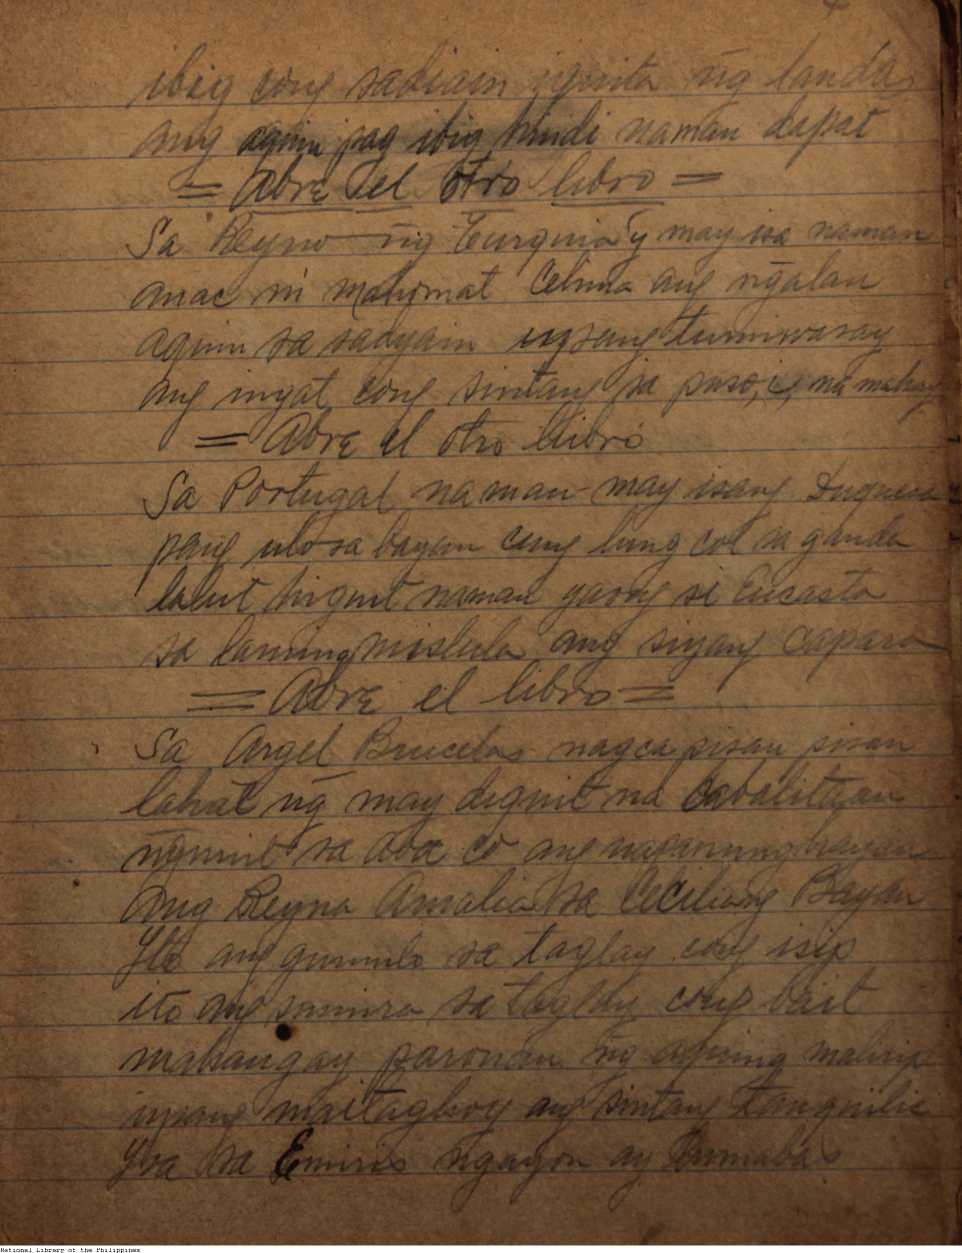 ibig cong sabiain nguita ñg landas
ang aquin pag ibig hindi naman dapat
= Abre el otro libro =
Sa Reyno ñg Turquia y may isa naman
anac ni Mahomat Celima ang ñgalan
aquin sa sadyain upang tumiwasay
ang ingat cong sintang sa puso, na mahay
= Abre el otro libro
Sa Portugal naman may isang Duquesa
pang ulo sa bayan cung lung cot sa ganda
labit higuit naman yaong si Eucasta
sa laming mistula ang siyang capara
= Abre el libro =
Sa Argel Brucelas nagca pisan pisan
lahat ñg may diquit na cabalitaan
ñgunit sa aba co ang
ang Reyna Amalia sa Ceciliang Bayan
Yto ang gumulo sa taglay cong isip
ito ang sumira sa taglay cong bait
mahangay paronan ñg aquing malirip
upang maitagboy ang sintang tanquilic
Yva sa Emiris ngayon ay lumabas
National Library of the Philippines